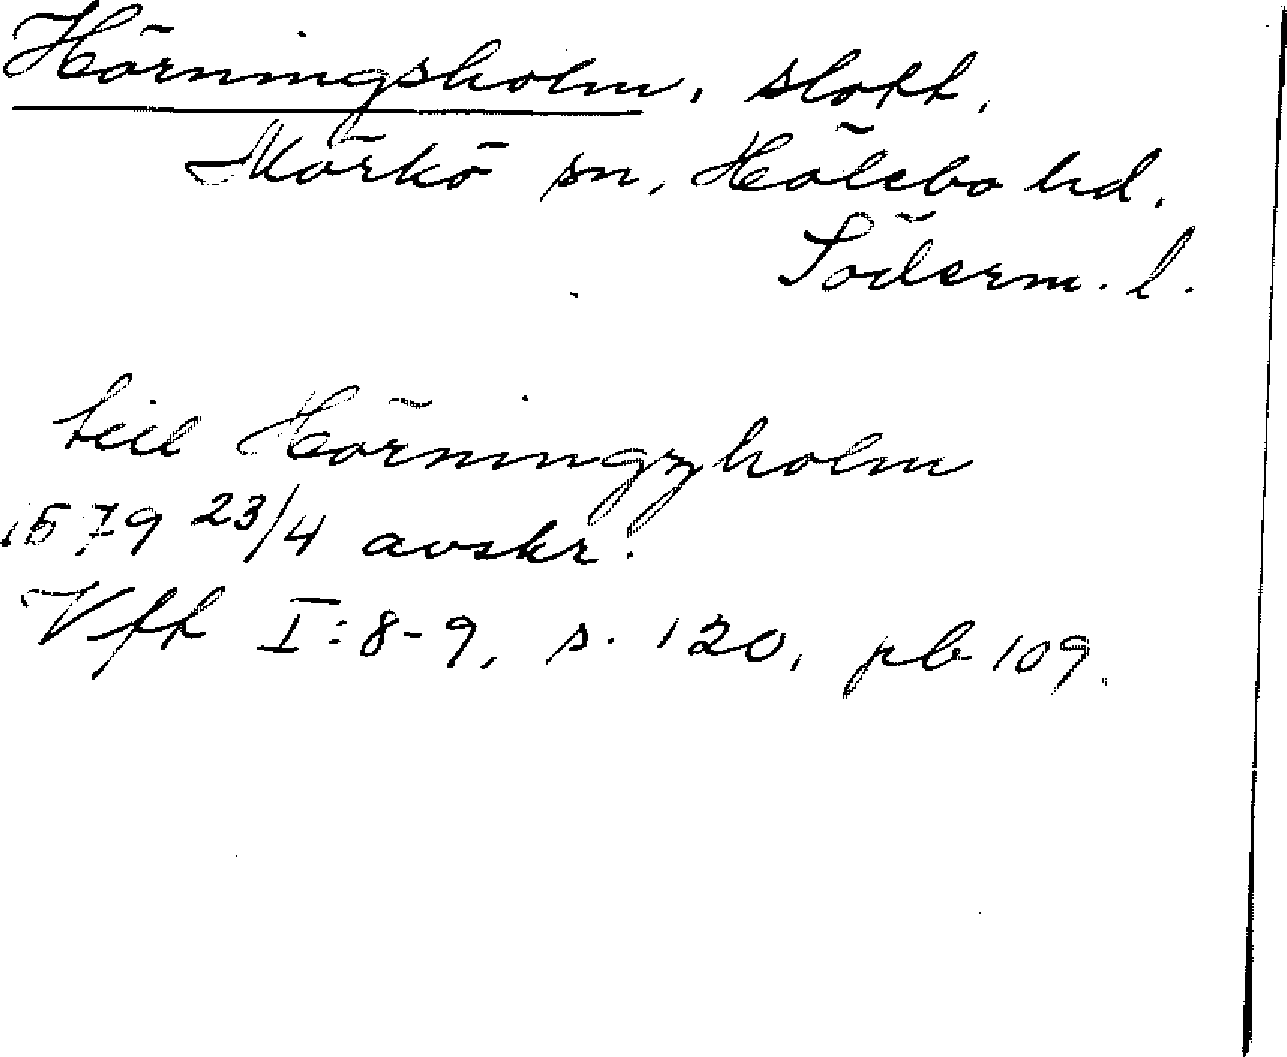 Hörningsholm, slott,
Mörkö sn, Hölebo hd.
Söderm. l.
till Hörningzholm
1579 23/4 avskr.
Vfk I:8-9, s. 120, pb 109.